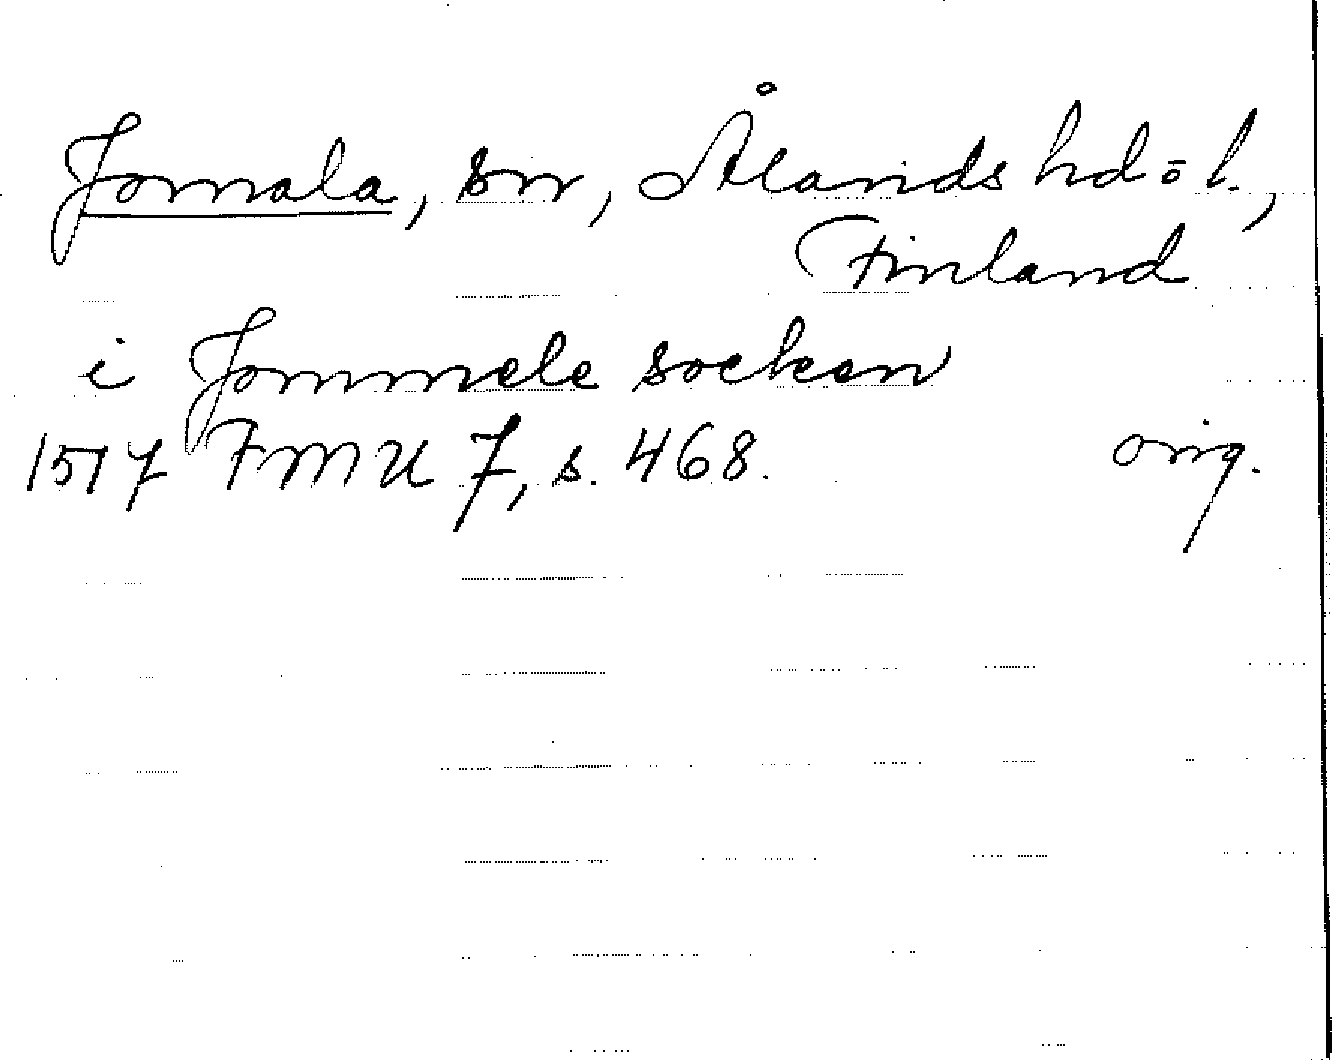 Jomala, sn, Ålands hd o l.,
Finland
i Jommele socken
1517 FMU 7, s. 468. orig.